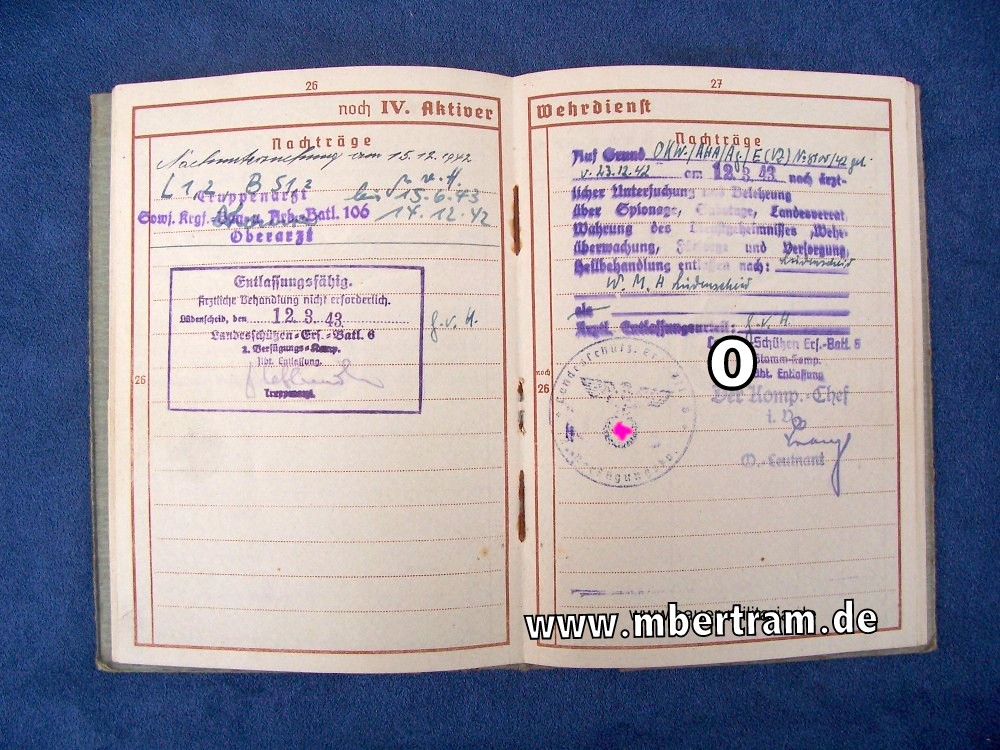 26
noch IV. Aktiver
Nachträge
Nachuntersuchung am 15.12.1942
L 1,2 B 51,2
Truppenarzt bis 15.6.43
Sowj. Krgf. Bau u. Arb. Batl. 106 14.12.42
Oberarzt
Entlassungsfähig.
Ärztliche Behandlung nicht erforderlich.
Lüdenscheid, den 12.3.43
Landesschützen-Ers.-Batl. 6
2. Verfügungs-Komp.
Abt. Entlassung.
Truppenarzt.
g.v.H.
26
27
Wehrdienst
Nachträge
Auf Grund OKW/AHA/Ag/E(V2) /42
v. 23.12.42 am 12.3.43 nach ärzt-
licher Untersuchung und Belehrung
über Spionage, Sabotage, Landesverrat,
Wahrung des Dienstgeheimnisses, Wehr-
überwachung, Fürsorge und Versorgung,
Heilbehandlung entlassen nach: Lüdenscheid
W.M.A Lüdenscheid
als
Ärztl. Entlassungsurteil: g.v.H.
Schützen Ers.-Batl. 6
Stamm-Komp.
Abt. Entlassung
Der Komp.-Chef
i. V.
O.-Leutnant
noch
26
0
www.mbertram.de